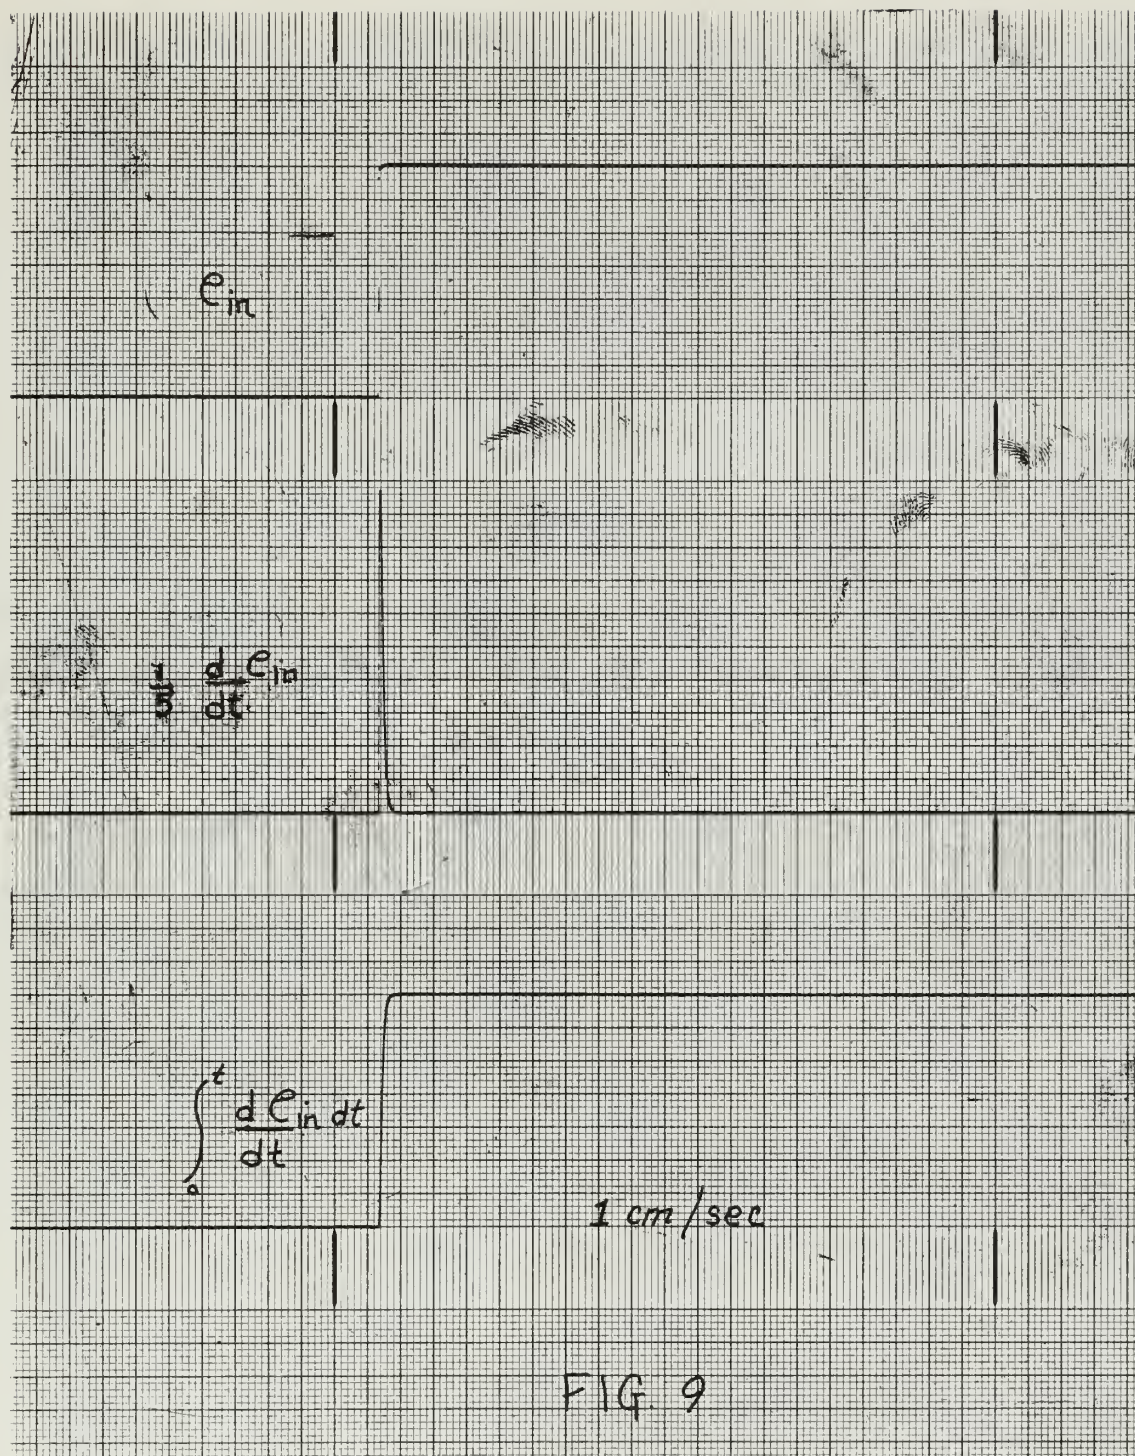 e in
1/5 d/dt e in
∫ₒᵗ d e in/dt dt
1 cm/sec
FIG. 9